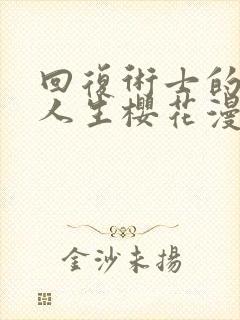 回復術士的
人生櫻花漫
金沙未揚